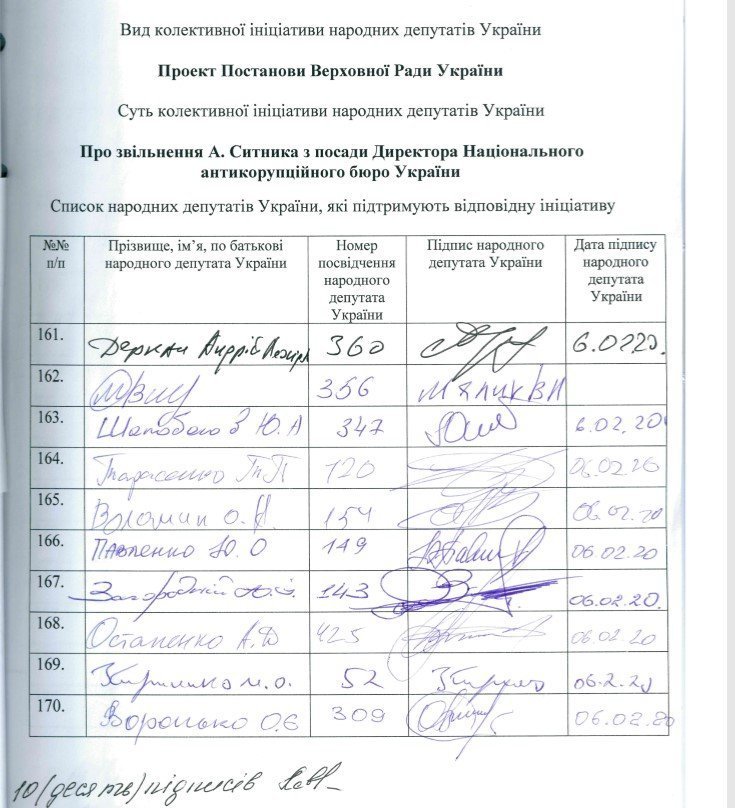 Вид колективної ініціативи народних депутатів України
Проект Постанови Верховної Ради України
Суть колективної ініціативи народних депутатів України
Про звільнення А. Ситника з посади Директора Національного
антикорупційного бюро України
Список народних депутатів України, які підтримують відповідну ініціативу
№№ п/п Прізвище, ім’я, по батькові народного депутата України Номер посвідчення народного депутата України Підпис народного депутата України Дата підпису народного депутата України
161. Деркач Андрій 360 6.0220.
162. 356 Мялик В Н
163. Шаповалов Ю.А 347 6.02.20.
164. Тарасенко Т.П 120 06.02.20
165. Волошин О.А. 154 06.02.20
166. Павленко Ю.О 149 06.02.20
167. Загородній Ю.І. 143 06.02.20.
168. Остапенко А.Д 425 06.02.20
169. 52 06.2.20
170. Воронько О.Є 309 06.02.20
10 (десять) підписів